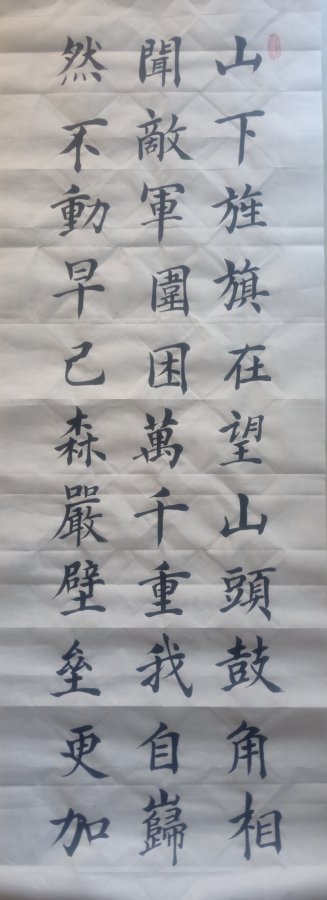 山下旌旗在望山頭鼓角相
聞敵軍圍困萬千重我自巋
然不動早已森嚴壁壘更加